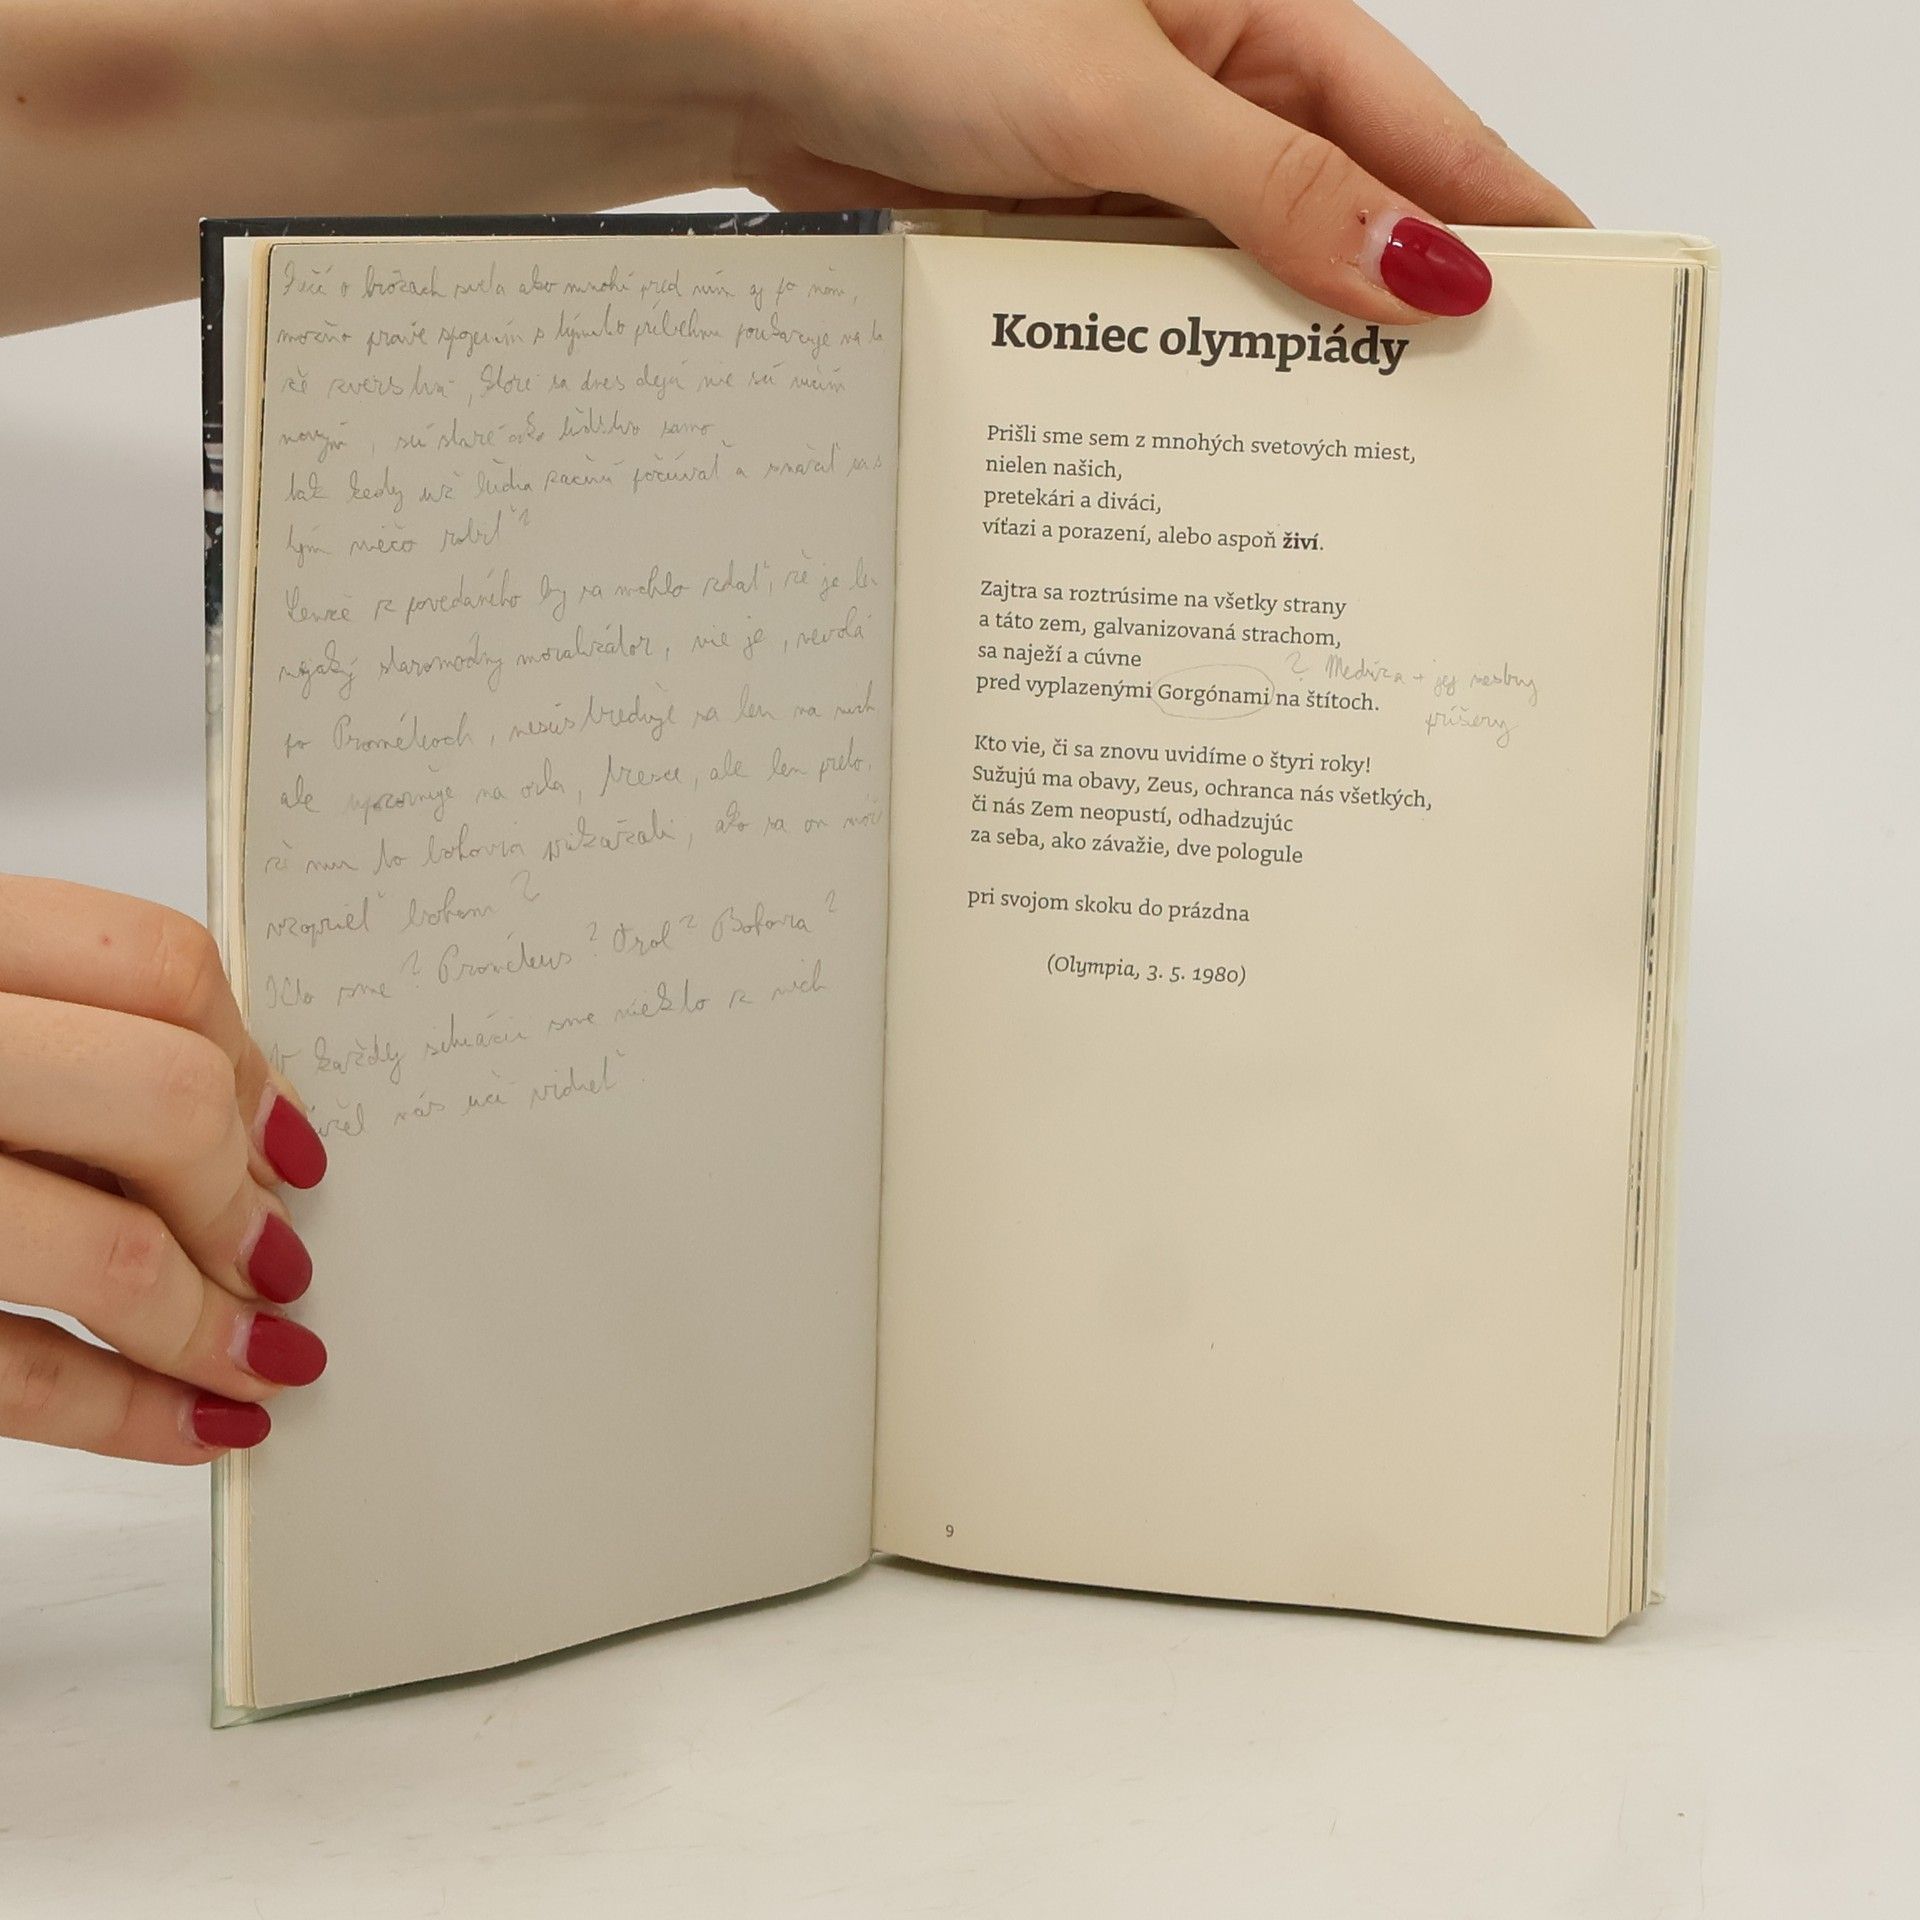 o hrôzach sveta ako mnohí pred ním aj po ňom,
možno práve spojením s týmto príbehom poukazuje na to
že zverstvá, ktoré sa dnes dejú nie sú ničím
novým, sú staré ako ľudstvo samo
tak kedy už ľudia začnú počúvať a snažiť sa s
tým niečo robiť?
z povedaného by sa mohlo zdať, že je len
nejaký staromódny moralizátor, nie je, nevolá
po Prométeoch, nesústreďuje sa len na nich
ale upozorňuje na orla, tresce, ale len preto,
že mu to bohovia prikázali, ako sa on môž
vzoprieť bohom?
Kto sme? Prométeus? Orol? Bohovia?
V každej situácii sme niekto z nich
nás učí vidieť.
Koniec olympiády
Prišli sme sem z mnohých svetových miest,
nielen našich,
pretekári a diváci,
víťazi a porazení, alebo aspoň živí.
Zajtra sa roztrúsime na všetky strany
a táto zem, galvanizovaná strachom,
sa naježí a cúvne
? Medúza + jej sestry
pred vyplazenými Gorgónami na štítoch.
príšery
Kto vie, či sa znovu uvidíme o štyri roky!
Sužujú ma obavy, Zeus, ochranca nás všetkých,
či nás Zem neopustí, odhadzujúc
za seba, ako závažie, dve pologule
pri svojom skoku do prázdna
(Olympia, 3. 5. 1980)
9